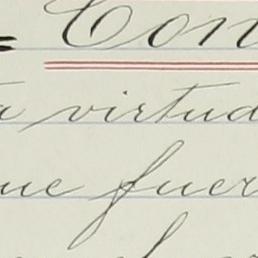 Con
a virtud
ue fuer